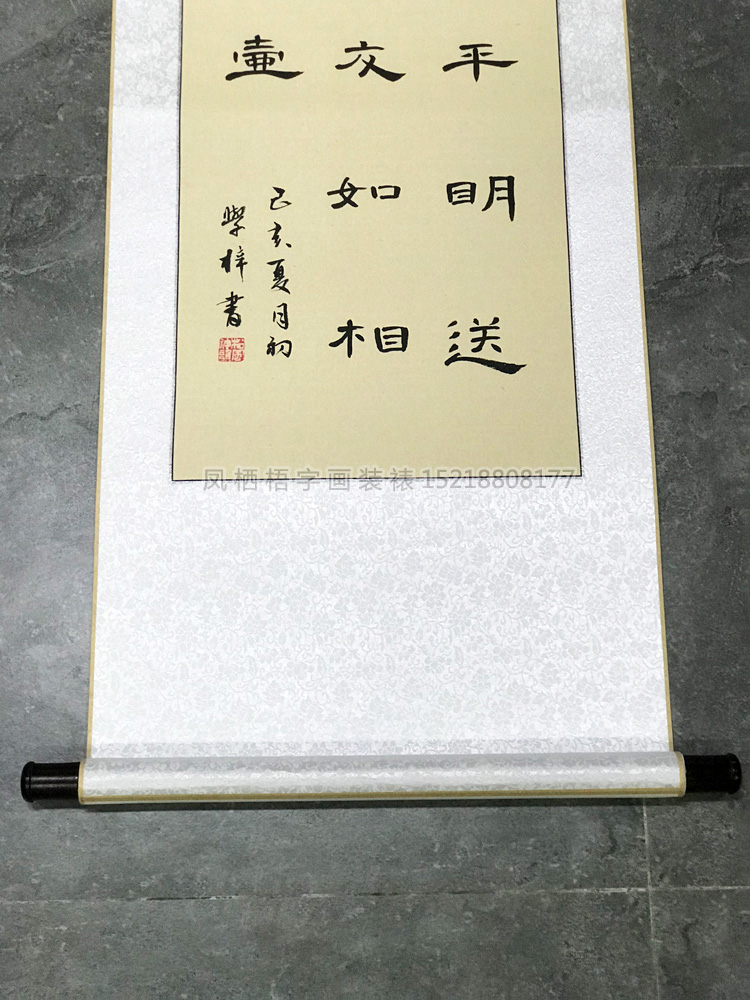 平明送
友如相
壺
己亥夏月初
學梓書
凤栖梧字画装裱15218808177